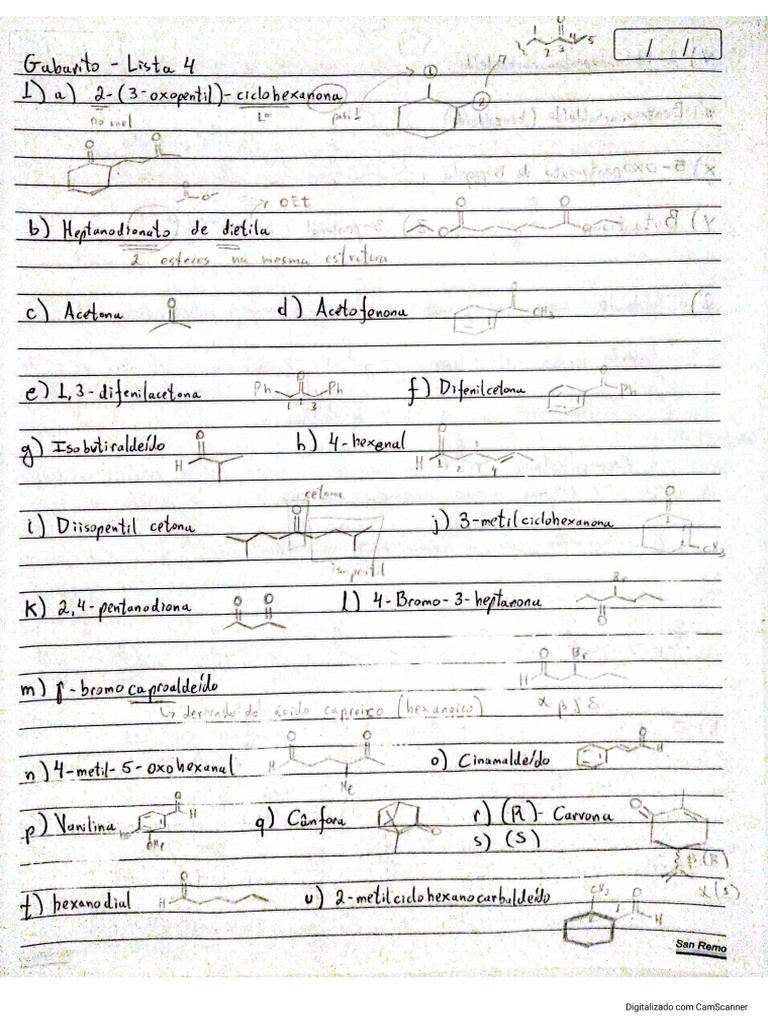 Gabarito - Lista 4
1) a) 2-(3-oxopentil)-ciclohexanona
no anel
posi 1
1
2
2 3 4 5
O
O O
OEt
b) Heptanodionato de dietila
2 esteres na mesma estrutura
O O
c) Acetona
O
d) Acetofenona
O
CH3
e) 1,3-difenilacetona
Ph O Ph
1 3
f) Difenilcetona
O
Ph
g) Isobutiraldeído
O
H
h) 4-hexenal
O
H 1 2 3 4
cetona
i) Diisopentil cetona
O
isopentil
j) 3-metilciclohexanona
O
CH3
k) 2,4-pentanodiona
O O
l) 4-Bromo-3-heptanona
Br
O
m) γ-bromo caproaldeído
O Br
H
α β γ δ
↳ derivado do ácido caproico (hexanoico)
n) 4-metil-5-oxohexanal
O O
H
Me
o) Cinamaldeído
O
H
p) Vanilina
O
H
HO
OMe
q) Cânfora
O
r) (R)-Carvona
s) (S)
O
β (R)
α (S)
t) hexanodial
O
H
u) 2-metilciclohexanocarbaldeído
CH3 O
H
San Remo
Digitalizado com CamScanner